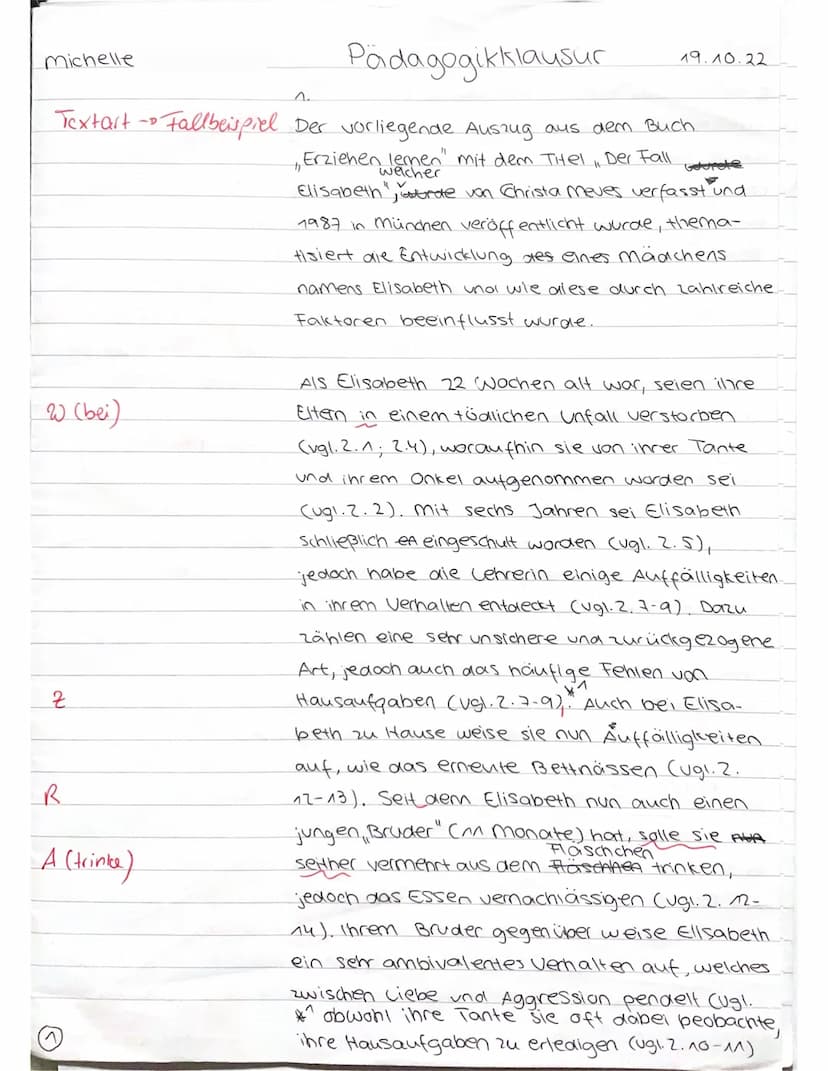 Michelle Pädagogikklausur 19.10.22
1.
Textart → Fallbeispiel Der vorliegende Auszug aus dem Buch
„Erziehen lernen" mit dem Titel „Der Fall wurde
welcher
Elisabeth", wurde von Christa Meves verfasst und
1987 in München veröffentlicht wurde, thema-
tisiert die Entwicklung des eines Mädchens
namens Elisabeth und wie diese durch zahlreiche
Faktoren beeinflusst wurde.
Als Elisabeth 22 Wochen alt war, seien ihre
W (bei) Eltern in einem tödlichen Unfall verstorben
(vgl. Z. 1; Z.4), woraufhin sie von ihrer Tante
und ihrem Onkel aufgenommen worden sei
(vgl. Z. 2). Mit sechs Jahren sei Elisabeth
schließlich en eingeschult worden (vgl. Z. 5),
jedoch habe die Lehrerin einige Auffälligkeiten
in ihrem Verhalten entdeckt (vgl. Z. 7-9). Dazu
zählen eine sehr unsichere und zurückgezogene
Art, jedoch auch das häufige Fehlen von
Z Hausaufgaben (vgl. Z. 7-9),*1. Auch bei Elisa-
beth zu Hause weise sie nun Auffälligkeiten
auf, wie das erneute Bettnässen (vgl. Z.
R 12-13). Seit dem Elisabeth nun auch einen
jungen „Bruder" (11 Monate) hat, solle sie nur
Fläschchen
A (trinke) seither vermehrt aus dem Fläschhen trinken,
jedoch das Essen vernachlässigen (vgl. Z. 12-
14). Ihrem Bruder gegenüber weise Elisabeth
ein sehr ambivalentes Verhalten auf, welches
zwischen Liebe und Aggression pendelt (vgl.
*1 obwohl ihre Tante sie oft dabei beobachte,
1 ihre Hausaufgaben zu erledigen (vgl. Z. 10-11)